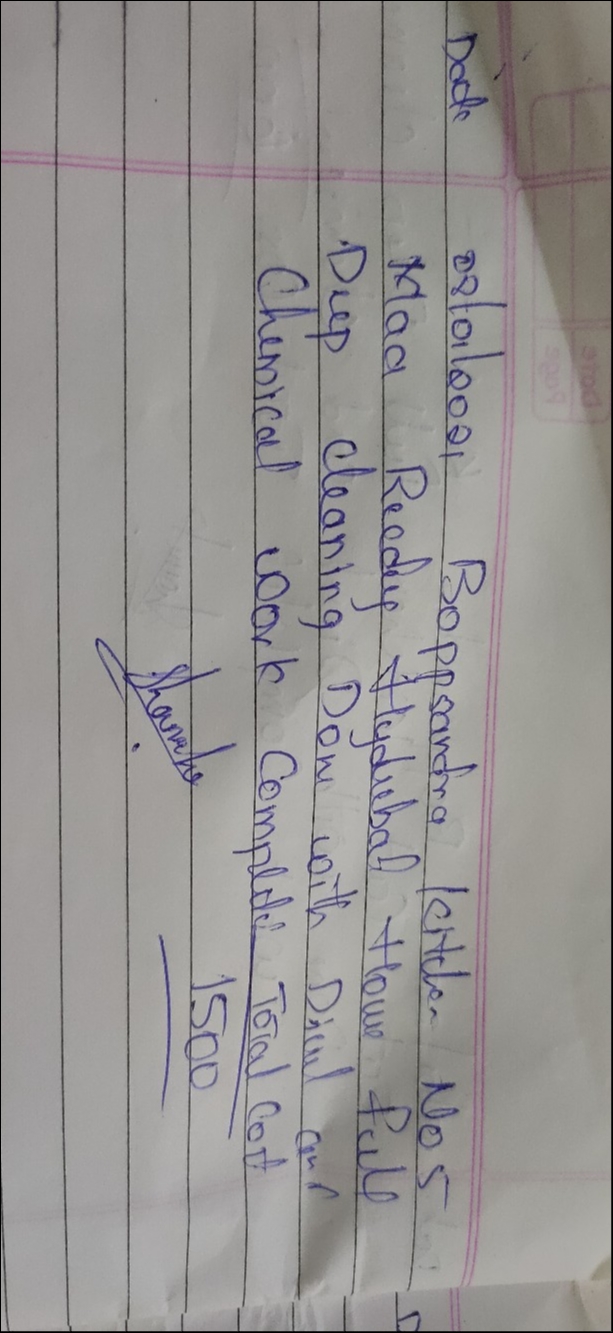 Date
Date 08/01/2021 Boppsandra kitchen No 5
Maa Reedy Hydrebal Houe full
Deep cleaning Don with Disal and
Chemical work Complete Total Cost
1500
Page
Date